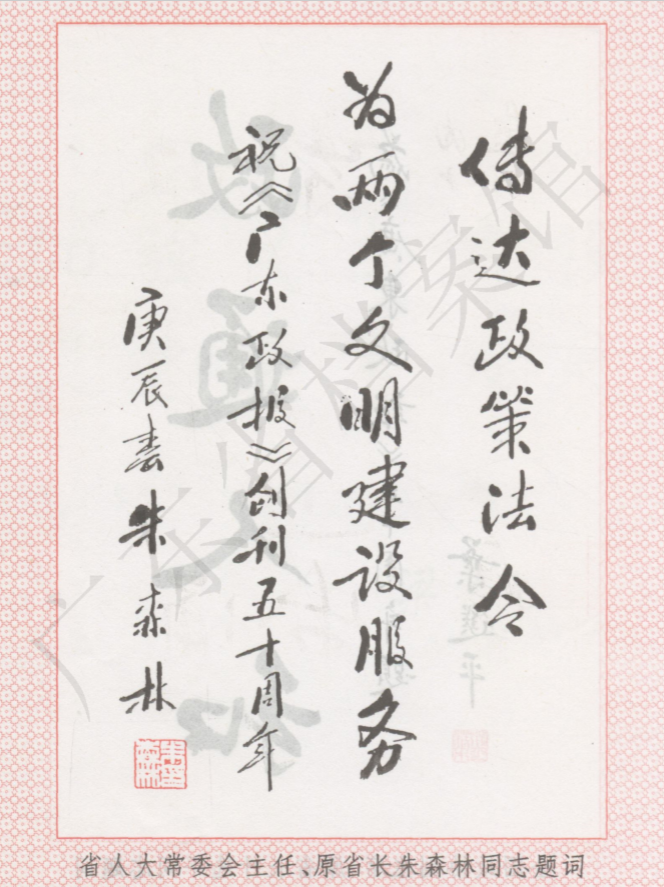 传达政策法令
为两个文明建设服务
祝《广东政报》创刊五十周年
庚辰春 朱森林
省人大常委会主任、原省长朱森林同志题词
广东省档案馆